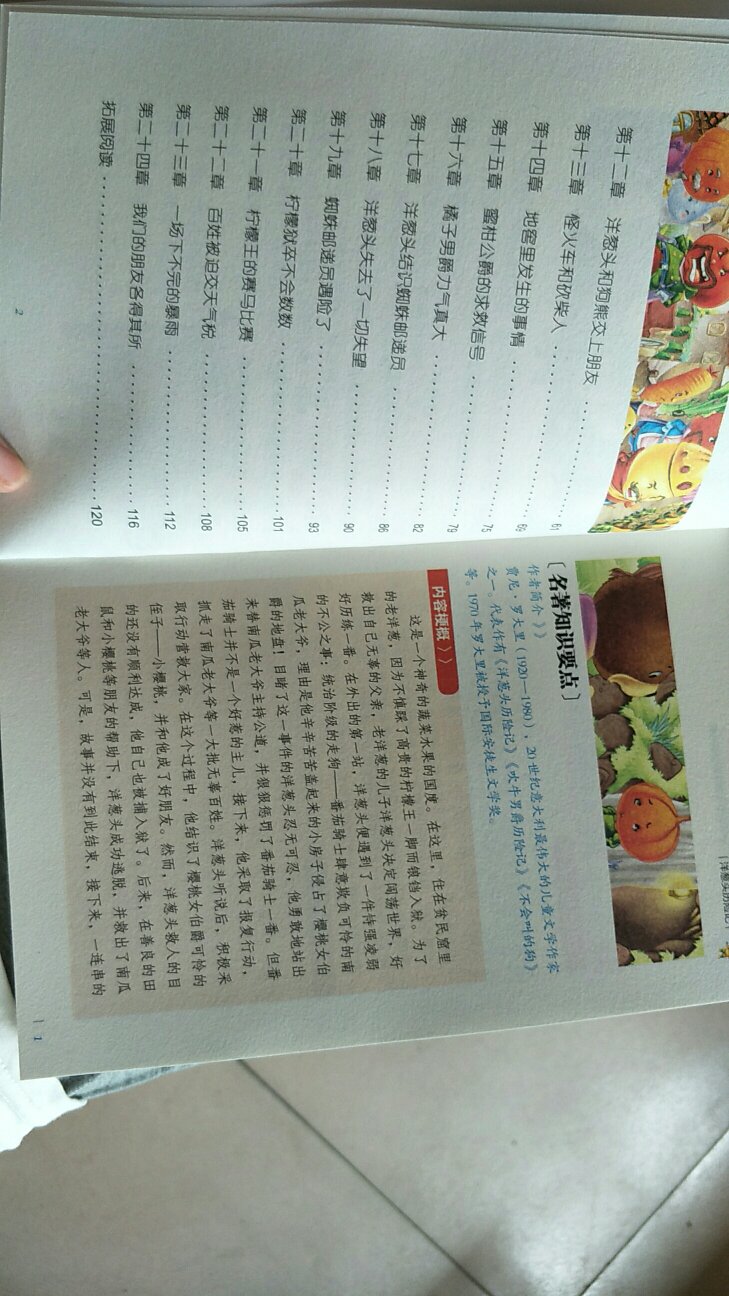 第十二章 洋葱头和狗熊交上朋友 61
第十三章 怪火车和砍柴人
第十四章 地窖里发生的事情 69
第十五章 蜜柑公爵的求救信号 75
第十六章 橘子男爵力气真大 79
第十七章 洋葱头结识蜘蛛邮递员 82
第十八章 洋葱头失去了一切失望 86
第十九章 蜘蛛邮递员遇险了 90
第二十章 柠檬狱卒不会数数 93
第二十一章 柠檬王的赛马比赛 101
第二十二章 百姓被迫交天气税 105
第二十三章 一场下不完的暴雨 108
第二十四章 我们的朋友各得其所 112
116
拓展阅读 120
2
洋葱头历险记
［名著知识要点］
作者简介 》》
贾尼·罗大里（1920—1980），20世纪意大利最伟大的儿童文学作家
之一。代表作有《洋葱头历险记》《吹牛男爵历险记》《不会叫的狗》
等。1970年罗大里被授予国际安徒生文学奖。
内容梗概 》》
这是一个神奇的蔬菜水果的国度。在这里，住在贫民窟里
的老洋葱，因为不慎踩了高贵的柠檬王一脚而锒铛入狱。为了
救出自己无辜的父亲，老洋葱的儿子洋葱头决定闯荡世界，好
好历练一番。在外出的第一站，洋葱头便遇到了一件恃强凌弱
的不公之事：统治阶级的走狗——番茄骑士肆意欺负可怜的南
瓜老大爷，理由是他辛辛苦苦盖起来的小房子侵占了樱桃女伯
爵的地盘！目睹了这一事件的洋葱头忍无可忍，他勇敢地站出
来替南瓜老大爷主持公道，并狠狠惩罚了番茄骑士一番。但番
茄骑士并不是一个好惹的主儿，接下来，他采取了报复行动，
抓走了南瓜老大爷等一大批无辜百姓。洋葱头听说后，积极采
取行动营救大家。在这个过程中，他结识了樱桃女伯爵可怜的
侄子——小樱桃，并和他成了好朋友。然而，洋葱头救人的目
的还没有顺利达成，他自己也被捕入狱了。后来，在善良的田
鼠和小樱桃等朋友的帮助下，洋葱头成功逃脱，并救出了南瓜
老大爷等人。可是，故事并没有到此结束，接下来，一连串的
1